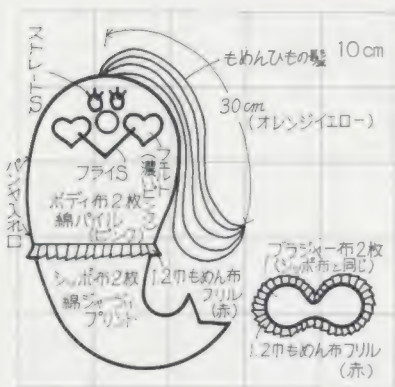 ストレートS
もめんひもの髪
10cm
30cm
(オレンジイエロー)
フライS
フェルト
(濃いピンク)
パンヤ入れ口
ボディ布2枚
綿パイル
(ピンク)
シッポ布2枚
綿ジャージィ
プリント
1.2巾もめん布
フリル
(赤)
ブラジャー布2枚
(シッポ布と同じ)
1.2巾もめん布フリル
(赤)